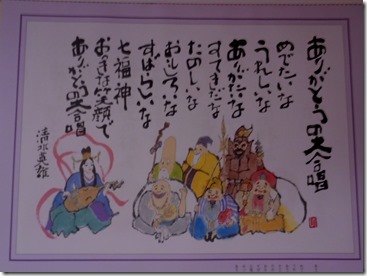 ありがとうの大合唱
めでたいな
うれしいな
ありがたいな
すてきだな
たのしいな
おもしろいな
すばらしいな
七福神
おおきな笑顔で
ありがとうの大合唱
清水克雄